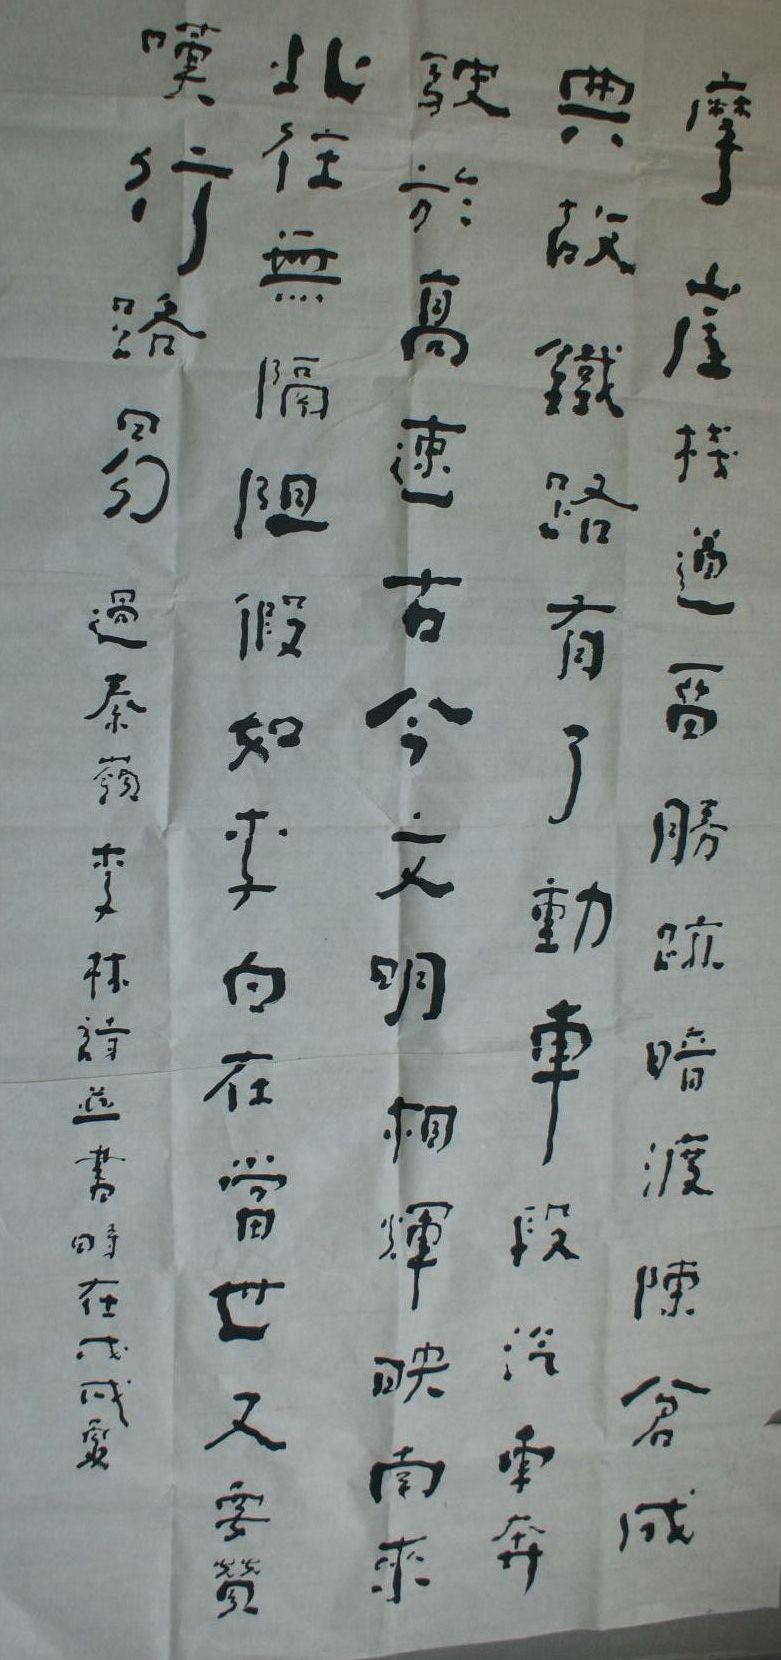 摩崖棧道留勝蹟暗渡陳倉成
典故鐵路有了動車段汽車奔
駛於高速古今文明相輝映南來
北往無隔阻假如李白在當世又要贊
嘆行路易 過秦嶺李林詩並書時在戊戌夏